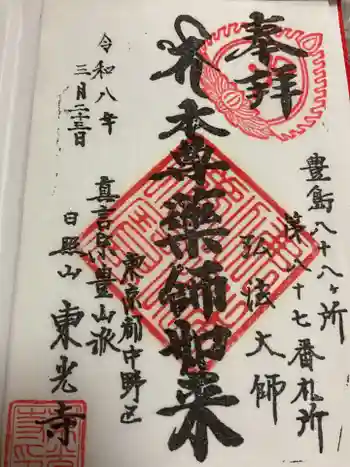 奉拝
豊島八十八ヶ所
第八十七番札所
弘法大師
本尊薬師如来
東京都中野区
真言宗豊山派
日照山 東光寺
令和八年
三月二十三日